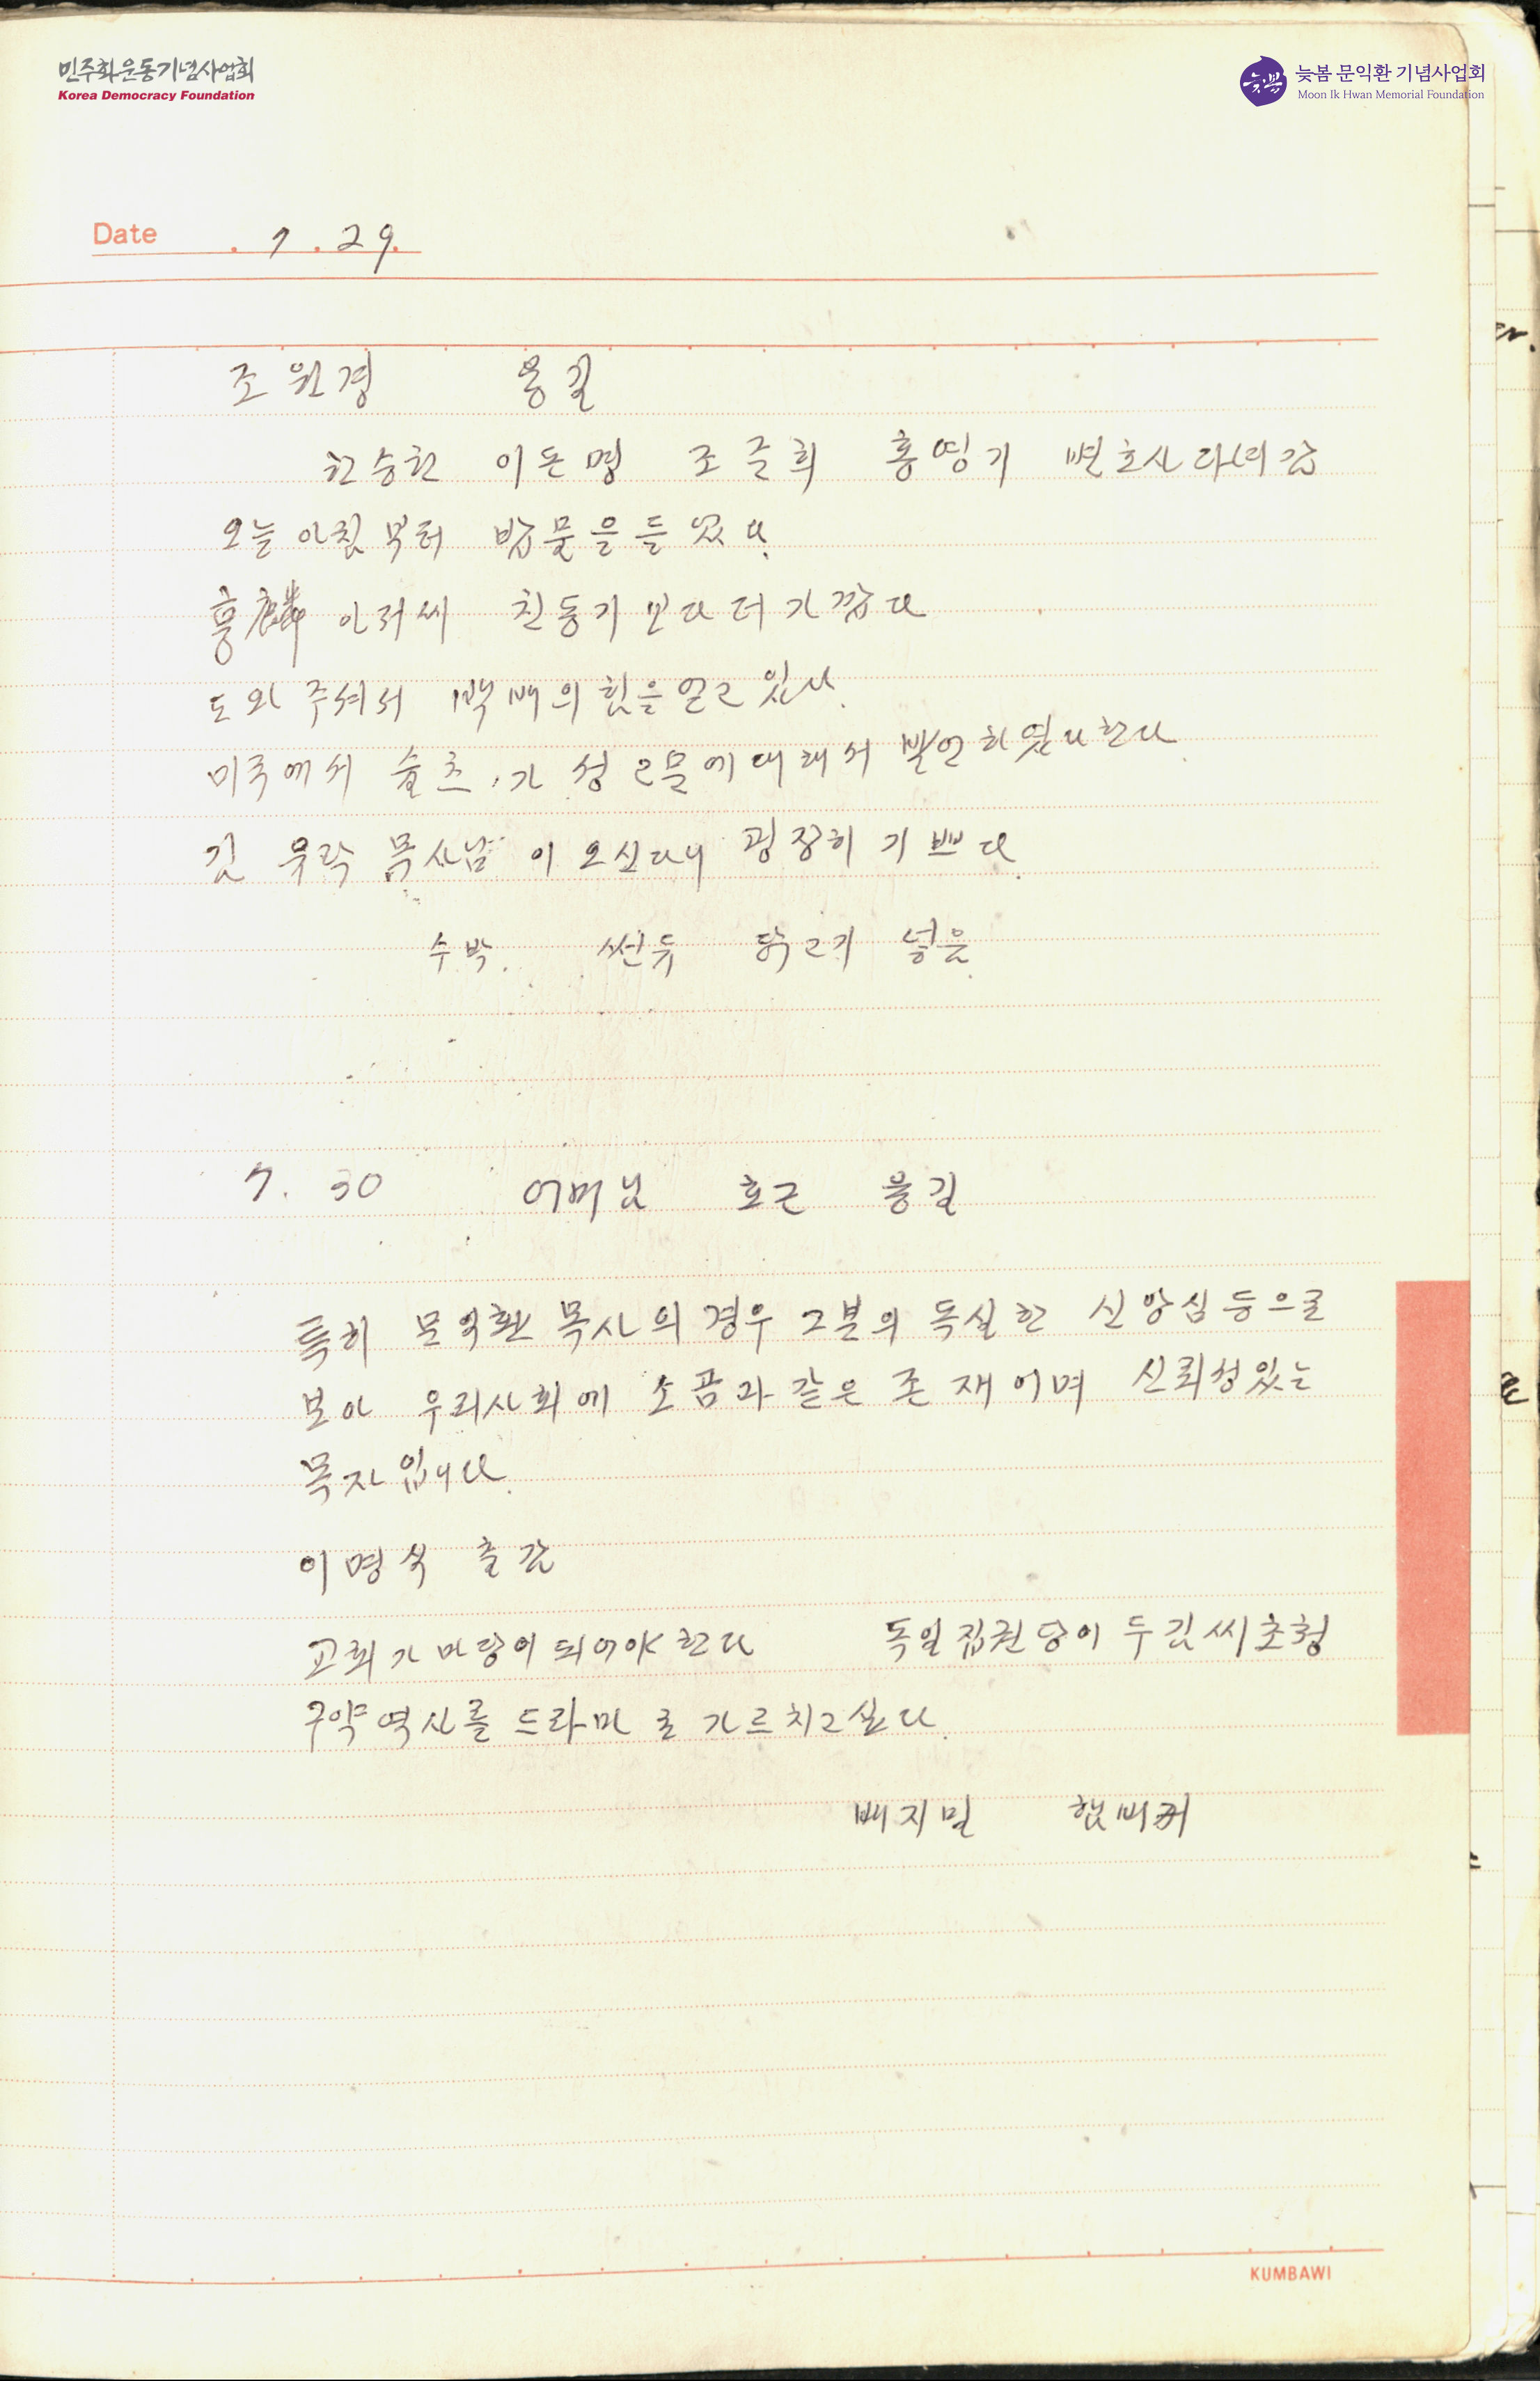 민주화운동기념사업회
Korea Democracy Foundation
늦봄 문익환 기념사업회
Moon Ik Hwan Memorial Foundation
Date . 7 . 29.
조원경 용길
한승헌 이돈명 조준희 홍영기 변호사 다녀감
오늘 아침부터 밥물을 들었다.
아저씨 친동기보다 더 가깝다
도와 주셔서 백배의 힘을 얻고 있다.
미국에서 가 성고문에 대해서 발언하였다 한다.
김 목사님이 오신다니 굉장히 기쁘다.
수박. 썬듀 닭고기 넣음.
7. 30 어머님 호근 용길
특히 문익환 목사의 경우 그분의 독실한 신앙심 등으로
보아 우리사회에 소곰과 같은 존재이며 신뢰성있는
목자입니다.
이명식 출감
교회가 마당이 되어야 한다 독일 집권당이 두 김씨 초청
구약역사를 드라마로 가르치고 싶다.
베지밀 햄버거
KUMBAWI